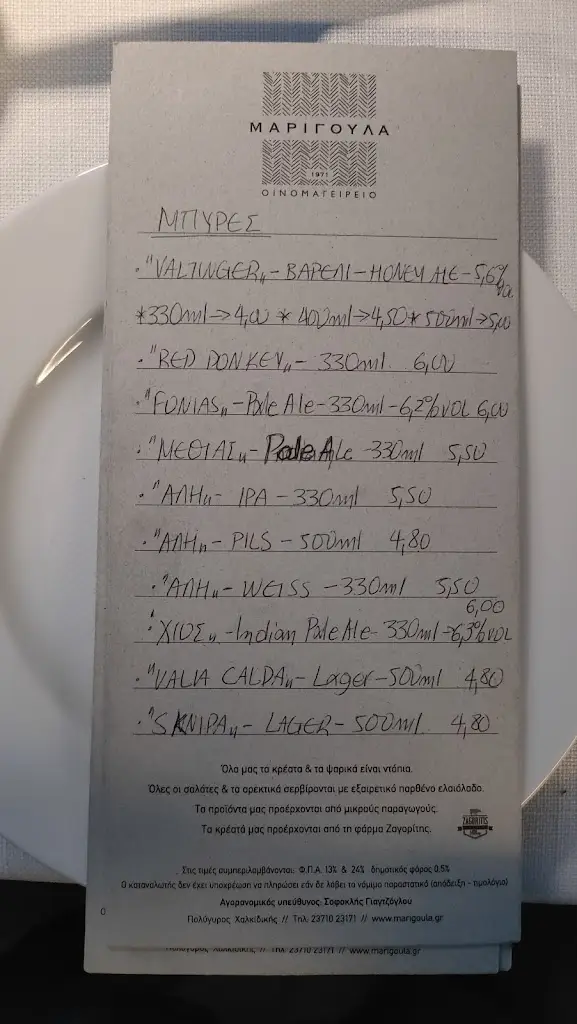 ΜΑΡΙΓΟΥΛΑ
1971
ΟΙΝΟΜΑΓΕΙΡΕΙΟ
ΜΠΥΡΕΣ
• "VALTINGER" - ΒΑΡΕΛΙ - HONEY ALE - 5,6% VOL
*330ml → 4,00 * 400ml → 4,50 * 500ml → 5,00
• "RED DONKEY" - 330ml 6,00
• "FONIAS" - Pale Ale - 330ml - 6,2% VOL 6,00
• "ΜΕΘΙΑΣ" - Pale Ale 330ml 5,50
• "ΑΛΗ" - IPA - 330ml 5,50
• "ΑΛΗ" - PILS - 500ml 4,80
• "ΑΛΗ" - WEISS - 330ml 5,50
6,00
• "ΧΙΟΣ" - Indian Pale Ale - 330ml - 6,3% VOL
• "VALIA CALDA" - Lager - 500ml 4,80
• "SKNIPA" - LAGER - 500ml 4,80
Όλα μας τα κρέατα & τα ψαρικά είναι ντόπια.
Όλες οι σαλάτες & τα ορεκτικά σερβίρονται με εξαιρετικό παρθένο ελαιόλαδο.
Τα προϊόντα μας προέρχονται από μικρούς παραγωγούς.
Τα κρέατά μας προέρχονται από τη φάρμα Ζαγορίτης.
ZAGORITIS
Στις τιμές συμπεριλαμβάνονται: Φ.Π.Α. 13% & 24% δημοτικός φόρος 0.5%
Ο καταναλωτής δεν έχει υποχρέωση να πληρώσει εάν δε λάβει το νόμιμο παραστατικό (απόδειξη - τιμολόγιο)
Αγορανομικός υπεύθυνος: Σοφοκλής Γιαγτζόγλου
Πολύγυρος Χαλκιδικής // Τηλ. 23710 23171 // www.marigoula.gr
Πολύγυρος Χαλκιδικής // Τηλ. 23710 23171 // www.marigoula.gr